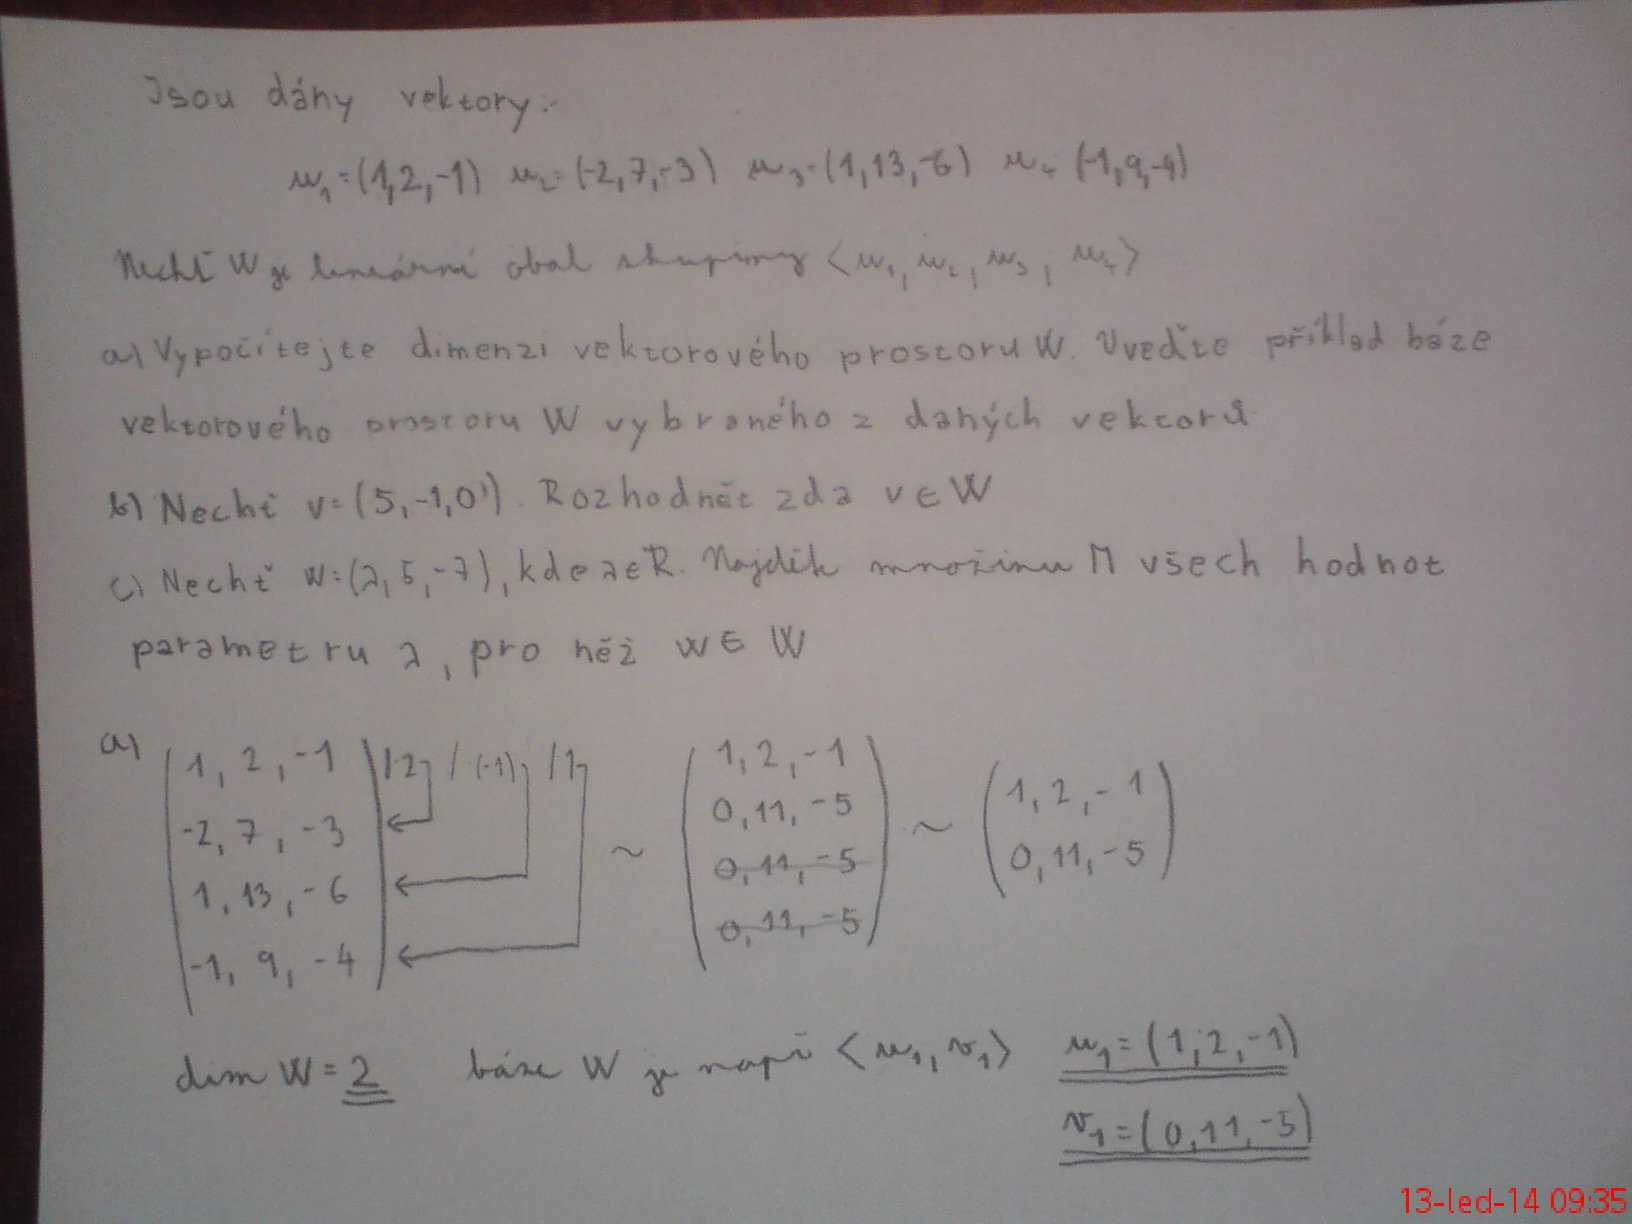 Jsou dány vektory:
u₁=(1,2,-1) u₂=(-2,7,-3) u₃=(1,13,-6) u₄=(-1,9,-4)
Nechť W je lineární obal skupiny ⟨u₁, u₂, u₃, u₄⟩
a) Vypočítejte dimenzi vektorového prostoru W. Uveďte příklad báze
vektorového prostoru W vybraného z daných vektorů
b) Nechť v=(5,-1,0). Rozhodnět zda v∈W
c) Nechť w=(λ,5,-7), kde λ∈R. Najděte množinu M všech hodnot
parametru λ, pro něž w∈W
a)
1, 2, -1 /2 /(-1) /1
-2, 7, -3
1, 13, -6
-1, 9, -4
~
1, 2, -1
0, 11, -5
0, 11, -5
0, 11, -5
~
1, 2, -1
0, 11, -5
dim W = 2 báze W je např ⟨u₁, v₁⟩ u₁=(1,2,-1)
v₁=(0,11,-5)
13-led-14 09:35